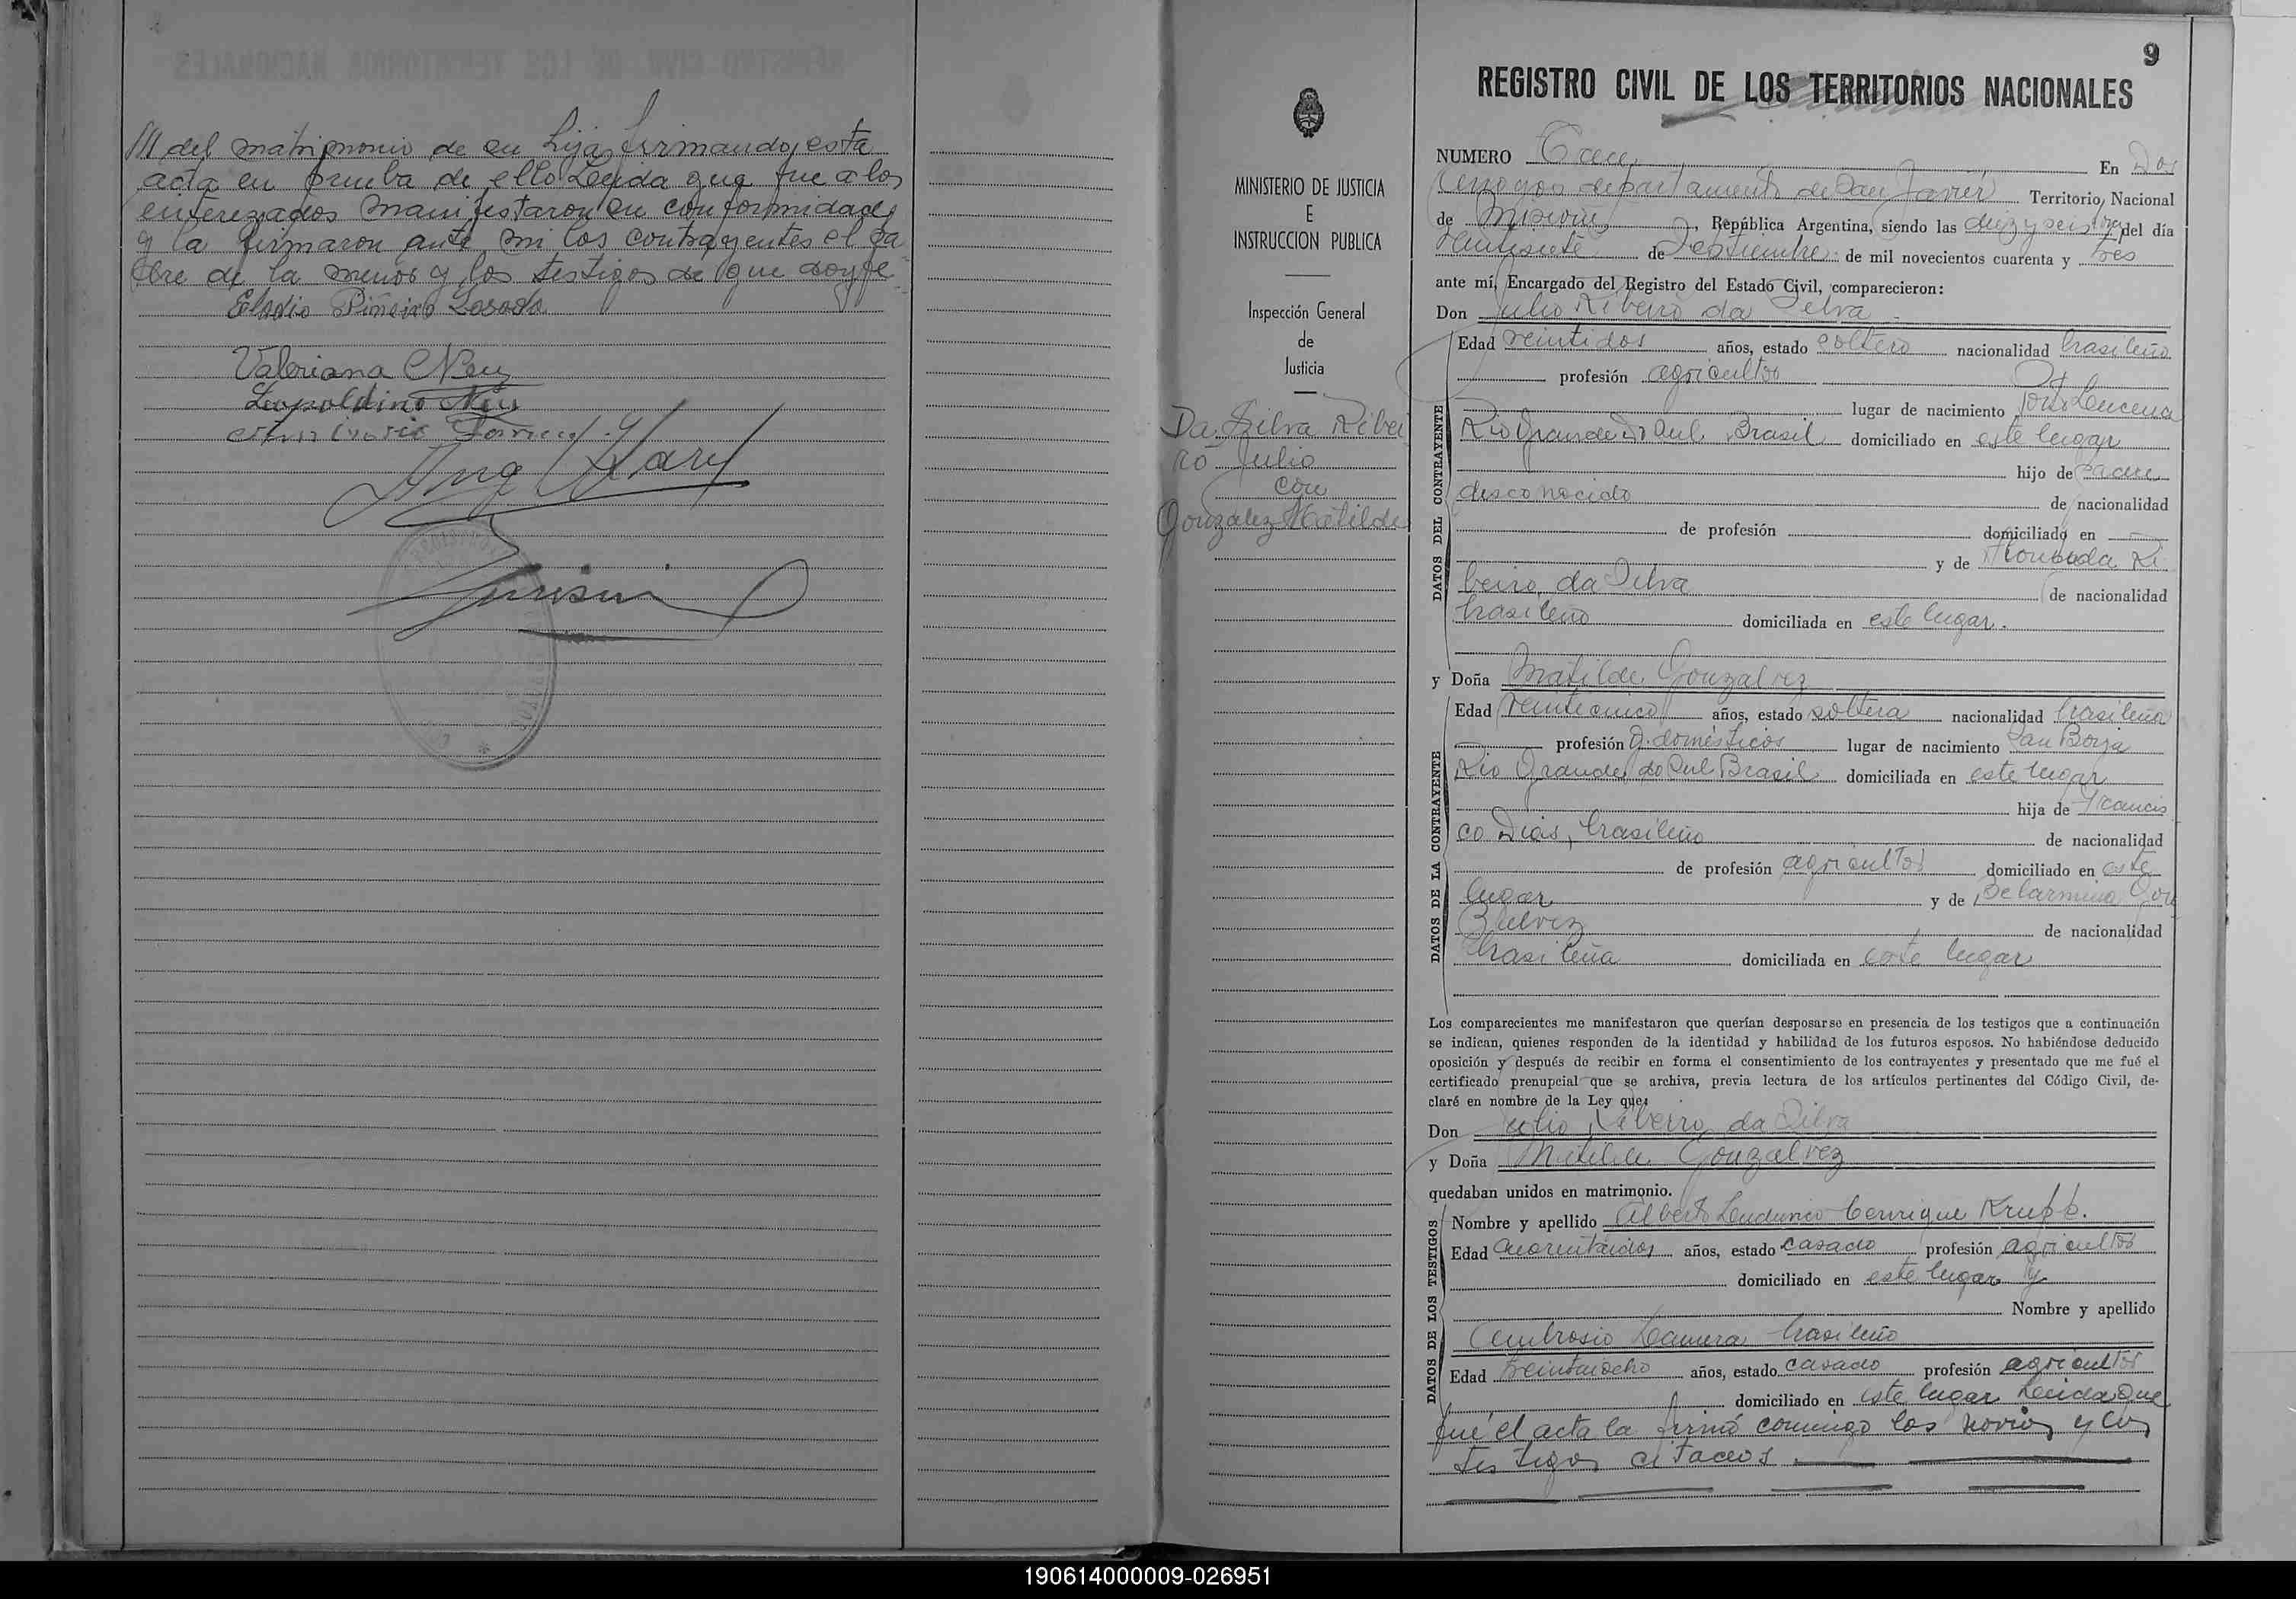 /// del matrimonio de su hija firmando esta
acta en prueba de ello Leyida que fue a los
enterezados manifestaron su conformidad
y la firmaron ante mi los contrayentes el pa
dre de la menor y los testigos de que doy fe
Eladio Piñeiro Losada
Valeriana Neu
Leopoldino Neu
MINISTERIO DE JUSTICIA
E
INSTRUCCION PUBLICA
Inspección General
de
Justicia
Da Silva Ribei
ro Julio
con
Gonzalez Matilde
9
REGISTRO CIVIL DE LOS TERRITORIOS NACIONALES
NUMERO En Dos
departamento de San Javier Territorio Nacional
de Misiones, República Argentina, siendo las diez y seis del día
veintisiete de Setiembre de mil novecientos cuarenta y tres
ante mí, Encargado del Registro del Estado Civil, comparecieron:
Don Julio Ribeiro da Silva
Edad veintidos años, estado soltero nacionalidad brasileño
profesión agricultor
lugar de nacimiento Porto Lucena
Rio Grande do Sul Brasil domiciliado en este lugar
hijo de padre
desconocido de nacionalidad
de profesión domiciliado en
y de Ri
beiro da Silva de nacionalidad
brasileño domiciliada en este lugar.
y Doña Matilde Gonzalvez
Edad veinticinco años, estado soltera nacionalidad brasileña
profesión Q. domésticos lugar de nacimiento San Borja
Rio Grande do Sul Brasil domiciliada en este lugar
hija de Francis
co Dias, brasileño de nacionalidad
de profesión agricultor domiciliado en este
lugar y de Belarmina Gon
zalvez de nacionalidad
brasileña domiciliada en este lugar
DATOS DEL CONTRAYENTE
DATOS DE LA CONTRAYENTE
Los comparecientes me manifestaron que querían desposarse en presencia de los testigos que a continuación
se indican, quienes responden de la identidad y habilidad de los futuros esposos. No habiéndose deducido
oposición y después de recibir en forma el consentimiento de los contrayentes y presentado que me fué el
certificado prenupcial que se archiva, previa lectura de los artículos pertinentes del Código Civil, de-
claré en nombre de la Ley que:
Don Julio Ribeiro da Silva
y Doña Matilde Gonzalvez
quedaban unidos en matrimonio.
Nombre y apellido Alberto Henrique Krupp.
Edad cuarentaidos años, estado casado profesión agricultor
domiciliado en este lugar y
Nombre y apellido
Ambrosio brasileño
Edad treintaiocho años, estado casado profesión agricultor
domiciliado en este lugar Leida que
fué el acta la firmó conmigo los novios y los
testigos citados
DATOS DE LOS TESTIGOS
190614000009-026951